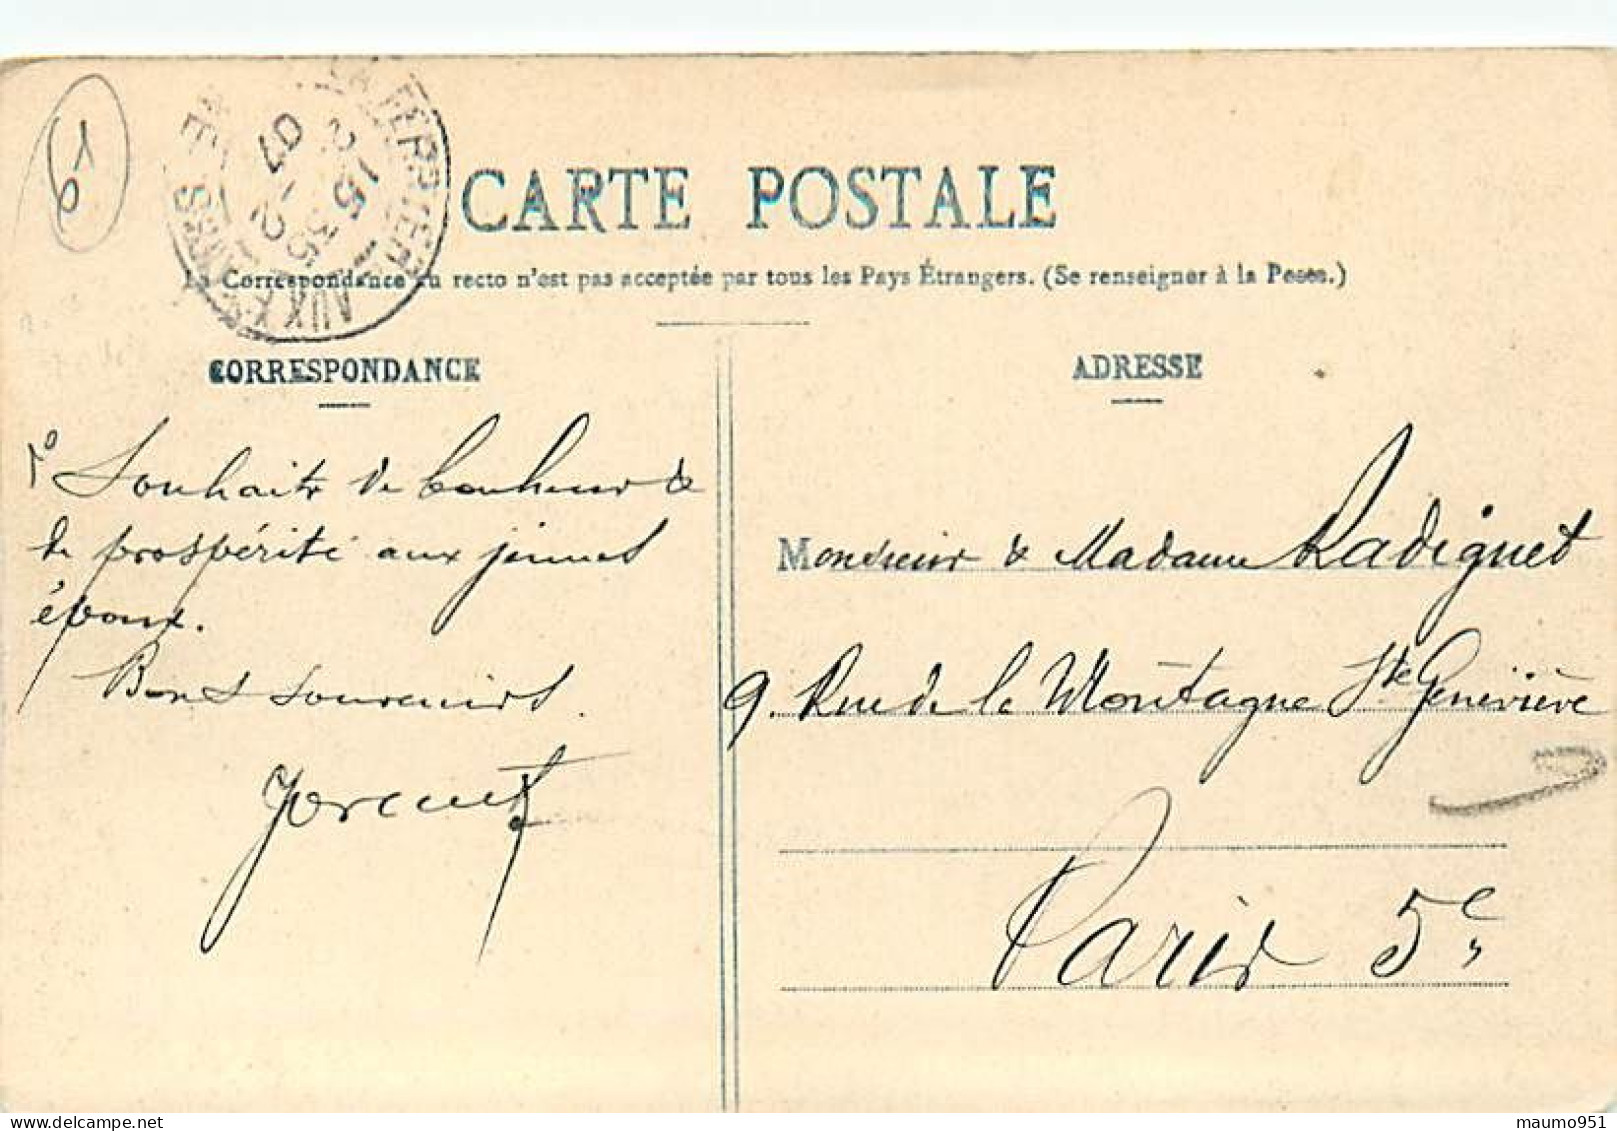 19
LA FERRIERE
AUX
07
CARTE POSTALE
La Correspondance au recto n'est pas acceptée par tous les Pays Étrangers. (Se renseigner à la Poste.)
CORRESPONDANCE
ADRESSE
1º Souhaits de bonheur &
de prospérité aux jeunes
époux.
Bons souvenirs.
Monsieur & Madame Radiguet
9. Rue de la Montagne Ste Geneviève
Paris 5e
maumo951